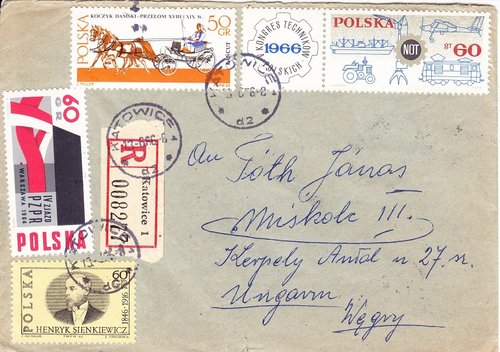 KOCZYK DAŃSKI-PRZEŁOM XVIII I XIX W.
POLSKA
50
GR
KONGRES TECHNIKÓW
1966
POLSKICH
POLSKA
NOT
gr 60
60
GR
IV ZJAZD
PZPR
WARSZAWA 1964
POLSKA
KATOWICE 1
d2
d2
R
Katowice 1
An
Tóth János
Miskolc III.
27. n.
Ungarn
Węgry
POLSKA
60
1846-1916
HENRYK SIENKIEWICZ